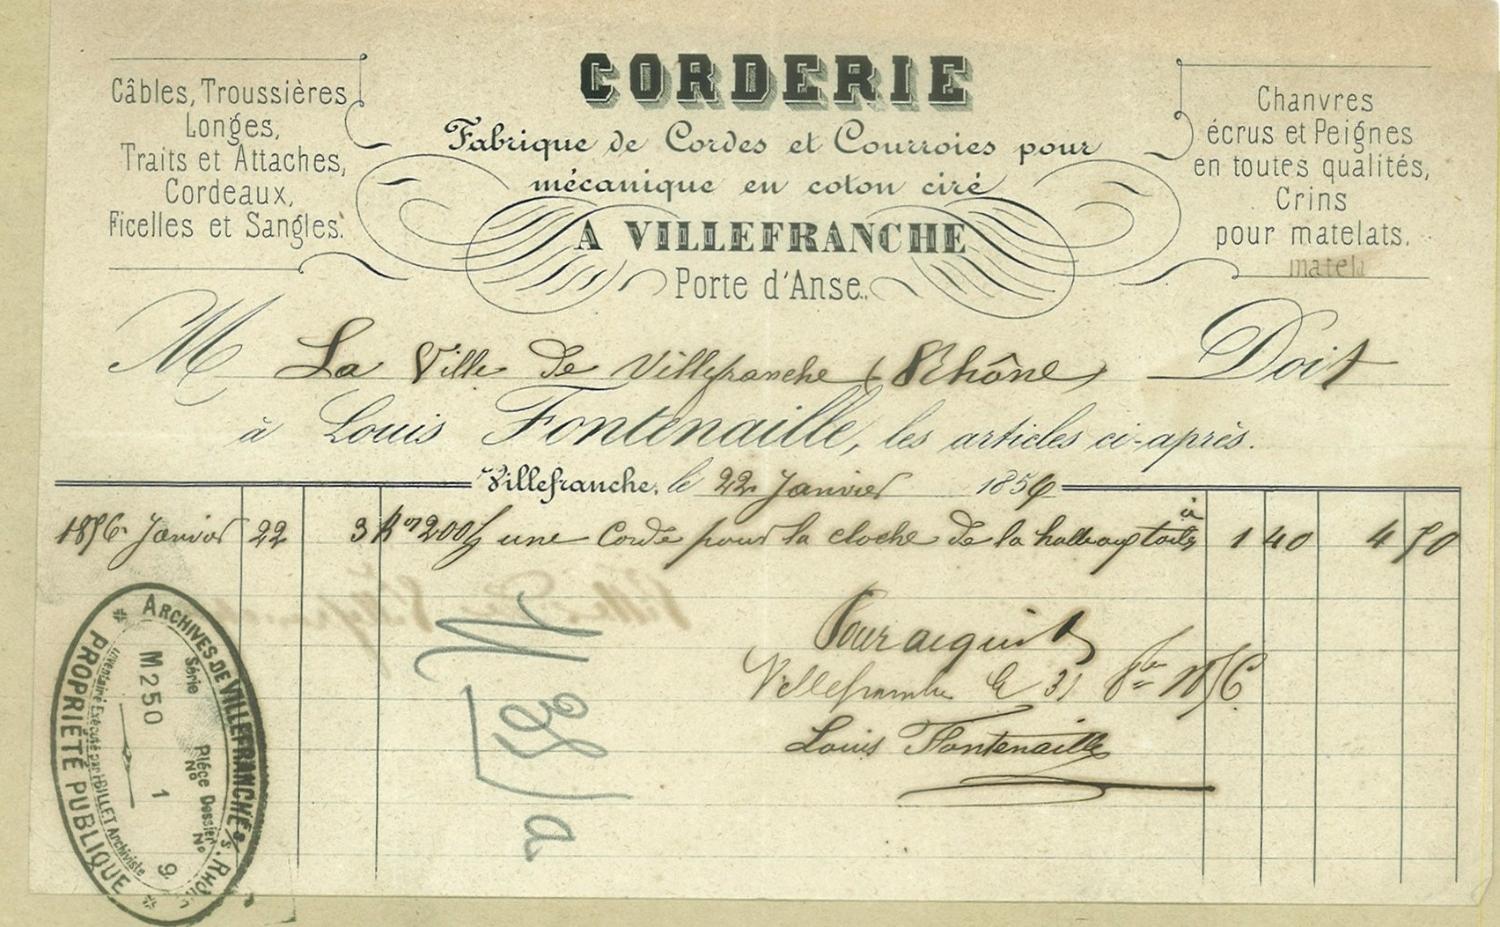 CORDERIE
Fabrique de Cordes et Courroies pour
mécanique en coton ciré
A VILLEFRANCHE
Porte d'Anse.
Câbles, Troussières
Longes,
Traits et Attaches,
Cordeaux,
Ficelles et Sangles.
Chanvres
écrus et Peignes
en toutes qualités,
Crins
pour matelats.
matela
M La Ville de Villefranche (Rhône) Doit
à Louis Fontenaille, les articles ci-après.
Villefranche, le 22 Janvier 1856
1856 Janvier 22 3 K 200 une Corde pour la cloche de la halle à 1 40 4 50
Pour acquit
Villefranche le 31 8bre 1856
Louis Fontenaille
ARCHIVES DE VILLEFRANCHE s/s. RHÔNE
Série
Pièce Dossier
No No
M250 1 9
Inventaire Exécuté par POILLET Archiviste
PROPRIÉTÉ PUBLIQUE